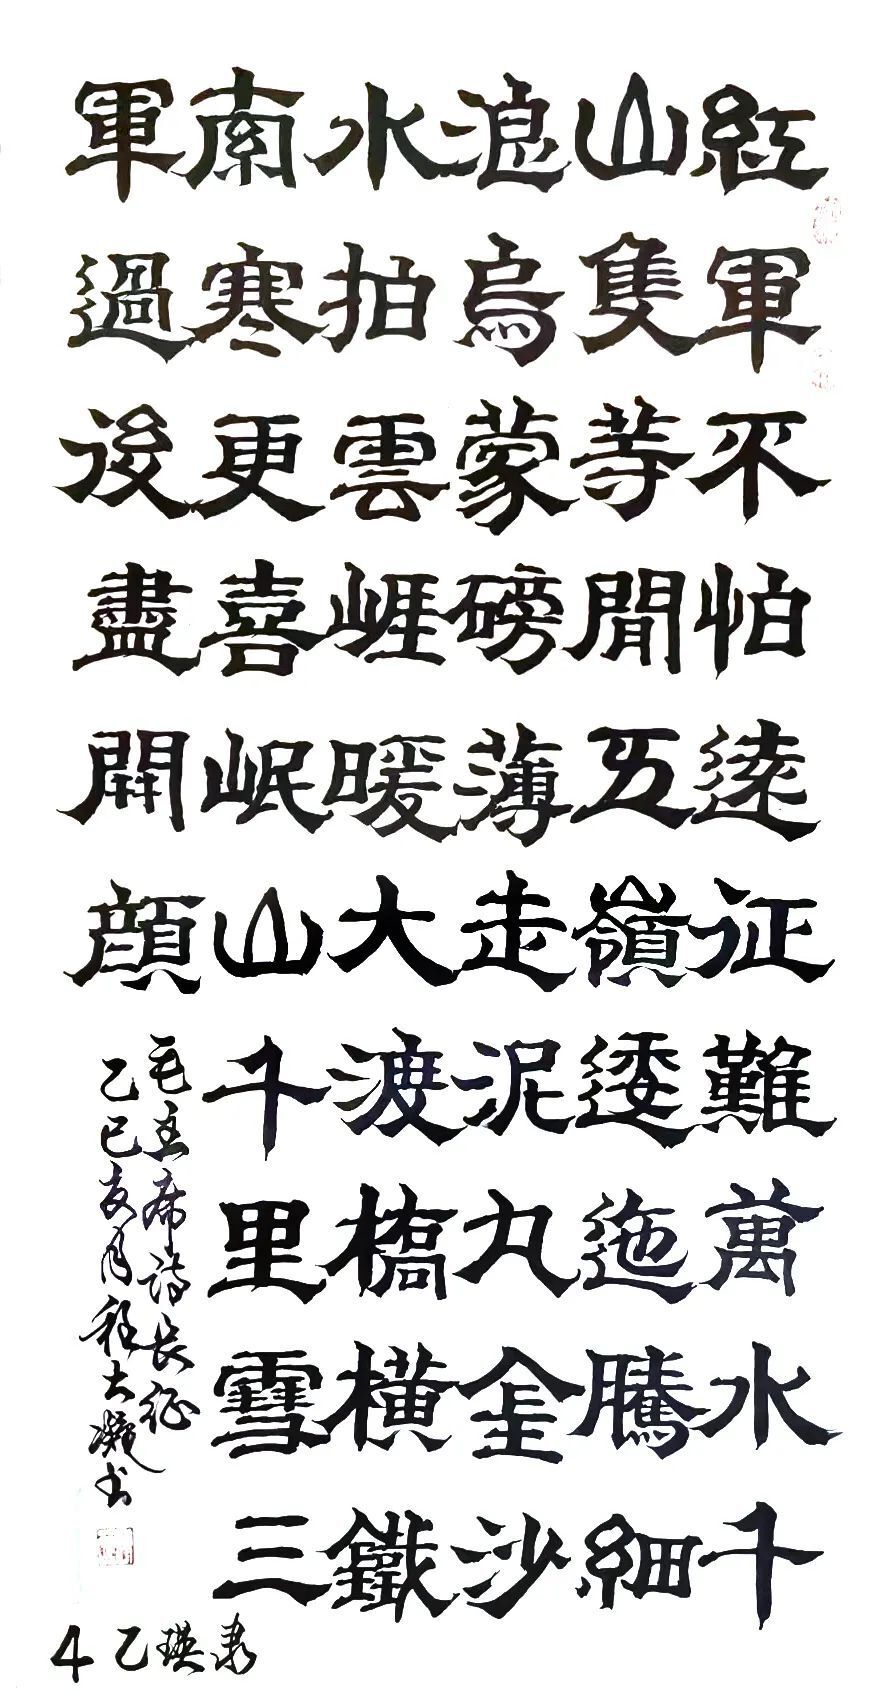 紅軍不怕遠征難萬水千
山隻等閒五嶺逶迤騰細
浪烏蒙磅薄走泥丸金沙
水拍雲崕暖大渡橋橫鐵
索寒更喜岷山千里雪三
軍過後盡開顏
毛主席诗长征
乙巳亥月程大凝书
4 乙瑛隶